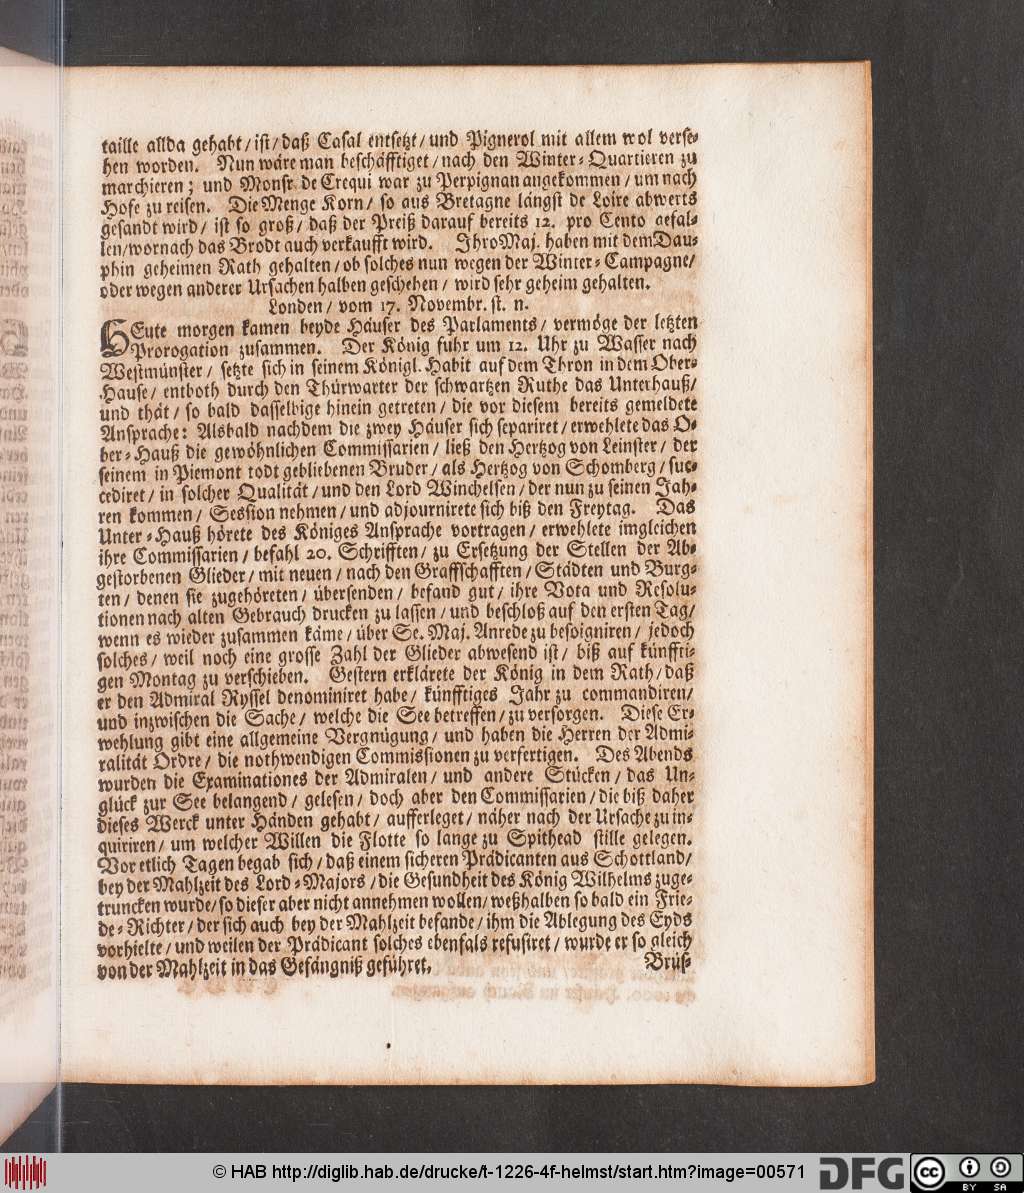 taille allda gehabt / ist / daß Casal entsetzt / und Pignerol mit allem wol verse-
hen worden. Nun wäre man beschäfftiget / nach den Winter-Quartieren zu
marchieren; und Monsr. de Crequi war zu Perpignan angekommen / um nach
Hofe zu reisen. Die Menge Korn / so aus Bretagne längst de Loire abwerts
gesandt wird / ist so groß / daß der Preiß darauf bereits 12. pro Cento gefal-
len/wornach das Brodt auch verkaufft wird. Ihro Maj. haben mit dem Dau-
phin geheimen Rath gehalten / ob solches nun wegen der Winter-Campagne/
oder wegen anderer Ursachen halben geschehen / wird sehr geheim gehalten.
Londen / vom 17. Novembr. st. n.
HEute morgen kamen beyde Häuser des Parlaments / vermöge der letzten
Prorogation zusammen. Der König fuhr um 12. Uhr zu Wasser nach
Westmünster / setzte sich in seinem Königl. Habit auf dem Thron in dem Ober-
Hause / entboth durch den Thürwarter der schwartzen Ruthe das Unterhauß/
und thät / so bald dasselbige hinein getreten / die vor diesem bereits gemeldete
Ansprache: Alsbald nachdem die zwey Häuser sich separiret / erwehlete das O-
ber-Hauß die gewöhnlichen Commissarien / ließ den Hertzog von Leinster / der
seinem in Piemont todt gebliebenen Bruder / als Hertzog von Schomberg / suc-
cediret / in solcher Qualität / und den Lord Winchelsen / der nun zu seinen Jah-
ren kommen / Session nehmen / und adjournirete sich biß den Freytag. Das
Unter-Hauß hörete des Königes Ansprache vortragen / erwehlete imgleichen
ihre Commissarien / befahl 20. Schrifften / zu Ersetzung der Stellen der Ab-
gestorbenen Glieder / mit neuen / nach den Graffschafften / Städten und Burg-
ten / denen sie zugehöreten / übersenden / befand gut / ihre Vota und Resolu-
tionen nach alten Gebrauch drucken zu lassen / und beschloß auf den ersten Tag/
wenn es wieder zusammen käme / über Se. Maj. Anrede zu besoigniren / jedoch
solches / weil noch eine grosse Zahl der Glieder abwesend ist / biß auf künffti-
gen Montag zu verschieben. Gestern erklärete der König in dem Rath / daß
er den Admiral Ryssel denominiret habe / künfftiges Jahr zu commandiren/
und inzwischen die Sache / welche die See betreffen / zu versorgen. Diese Er-
wehlung gibt eine allgemeine Vergnügung / und haben die Herren der Admi-
ralität Ordre / die nothwendigen Commissionen zu verfertigen. Des Abends
wurden die Examinationes der Admiralen / und andere Stücken / das Un-
glück zur See belangend / gelesen / doch aber den Commissarien / die biß daher
dieses Werck unter Händen gehabt / aufferleget / näher nach der Ursache zu in-
quiriren / um welcher Willen die Flotte so lange zu Spithead stille gelegen.
Vor etlich Tagen begab sich / daß einem sicheren Prädicanten aus Schottland/
bey der Mahlzeit des Lord-Majors / die Gesundheit des König Wilhelms zuge-
truncken wurde / so dieser aber nicht annehmen wollen / weßhalben so bald ein Frie-
de-Richter / der sich auch bey der Mahlzeit befande / ihm die Ablegung des Eyds
vorhielte / und weilen der Prädicant solches ebenfals refusiret / wurde er so gleich
von der Mahlzeit in das Gefängniß geführet.
Brüs-
© HAB http://diglib.hab.de/drucke/t-1226-4f-helmst/start.htm?image=00571
DFG
cc BY SA